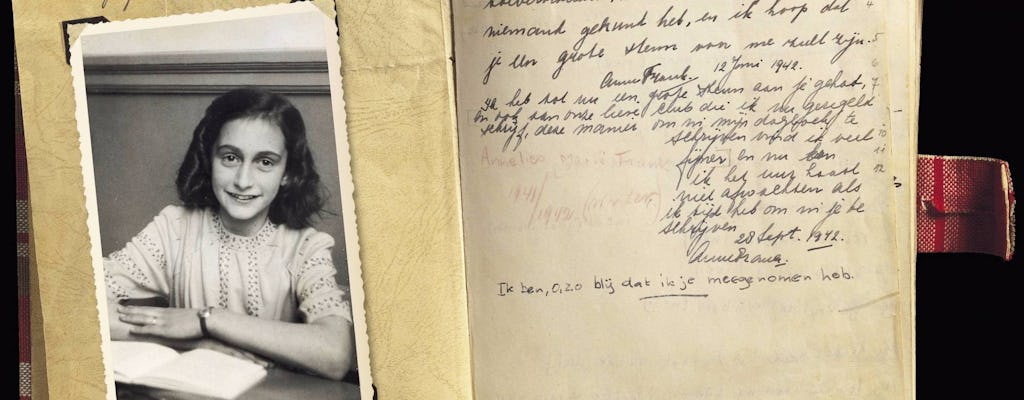 niemand gekund heb, en ik hoop dat
je een grote steun voor me zult zijn.
Anne Frank. 12 Juni 1942.
Ik heb tot nu een grote steun aan je gehad,
en ook aan onze lieve club die ik nu geregeld
schrijf, deze manier om in mijn dagboek te
schrijven vind ik veel
fijner en nu
ik het uur haast
niet afwachten als
ik tijd heb om in je te
schrijven.
28 Sept. 1942.
Anne Frank.
Ik ben, o, zo blij dat ik je meegenomen heb.
4
5
6
7
10
11
12
Annelies Marie Frank
1941/
1942.